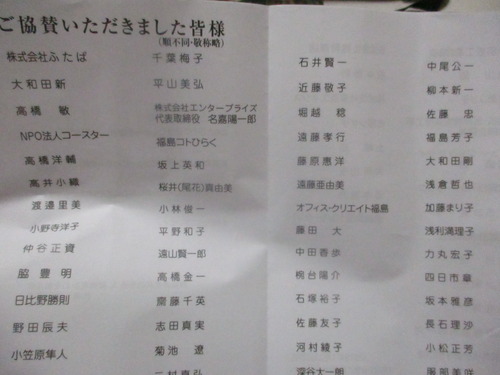 ご協賛いただきました皆様
(順不同・敬称略)
株式会社ふたば
大和田新
高橋 敏
NPO法人コースター
高橋洋輔
高井小織
渡邉里美
小野寺洋子
仲谷正資
脇豊明
日比野勝則
野田辰夫
小笠原隼人
千葉梅子
平山美弘
株式会社エンタープライズ
代表取締役 名嘉陽一郎
福島コトひらく
坂上英和
桜井(尾花)真由美
小林俊一
平野和子
遠山賢一郎
高橋金一
齋藤千英
志田真実
菊池 遼
二村直弘
石井賢一
近藤敬子
堀越 稔
遠藤孝行
藤原惠洋
遠藤亜由美
オフィス・クリエイト福島
藤田 大
中田春歩
椀台陽介
石塚裕子
佐藤友子
河村綾子
深谷大一郎
中尾公一
柳本新一
佐藤 忠
福島芳子
大和田剛
浅倉哲也
加藤まり子
浅利満理子
力丸宏子
四日市章
坂本雅彦
長石理沙
小松正芳
服部美咲